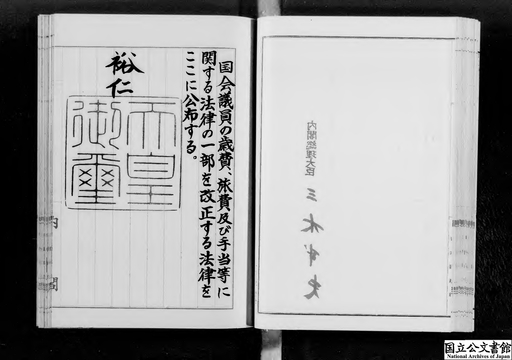 国会議員の歳費、旅費及び手当等に
関する法律の一部を改正する法律を
ここに公布する。
裕仁
天皇
御璽
内閣
内閣総理大臣
国立公文書館
National Archives of Japan